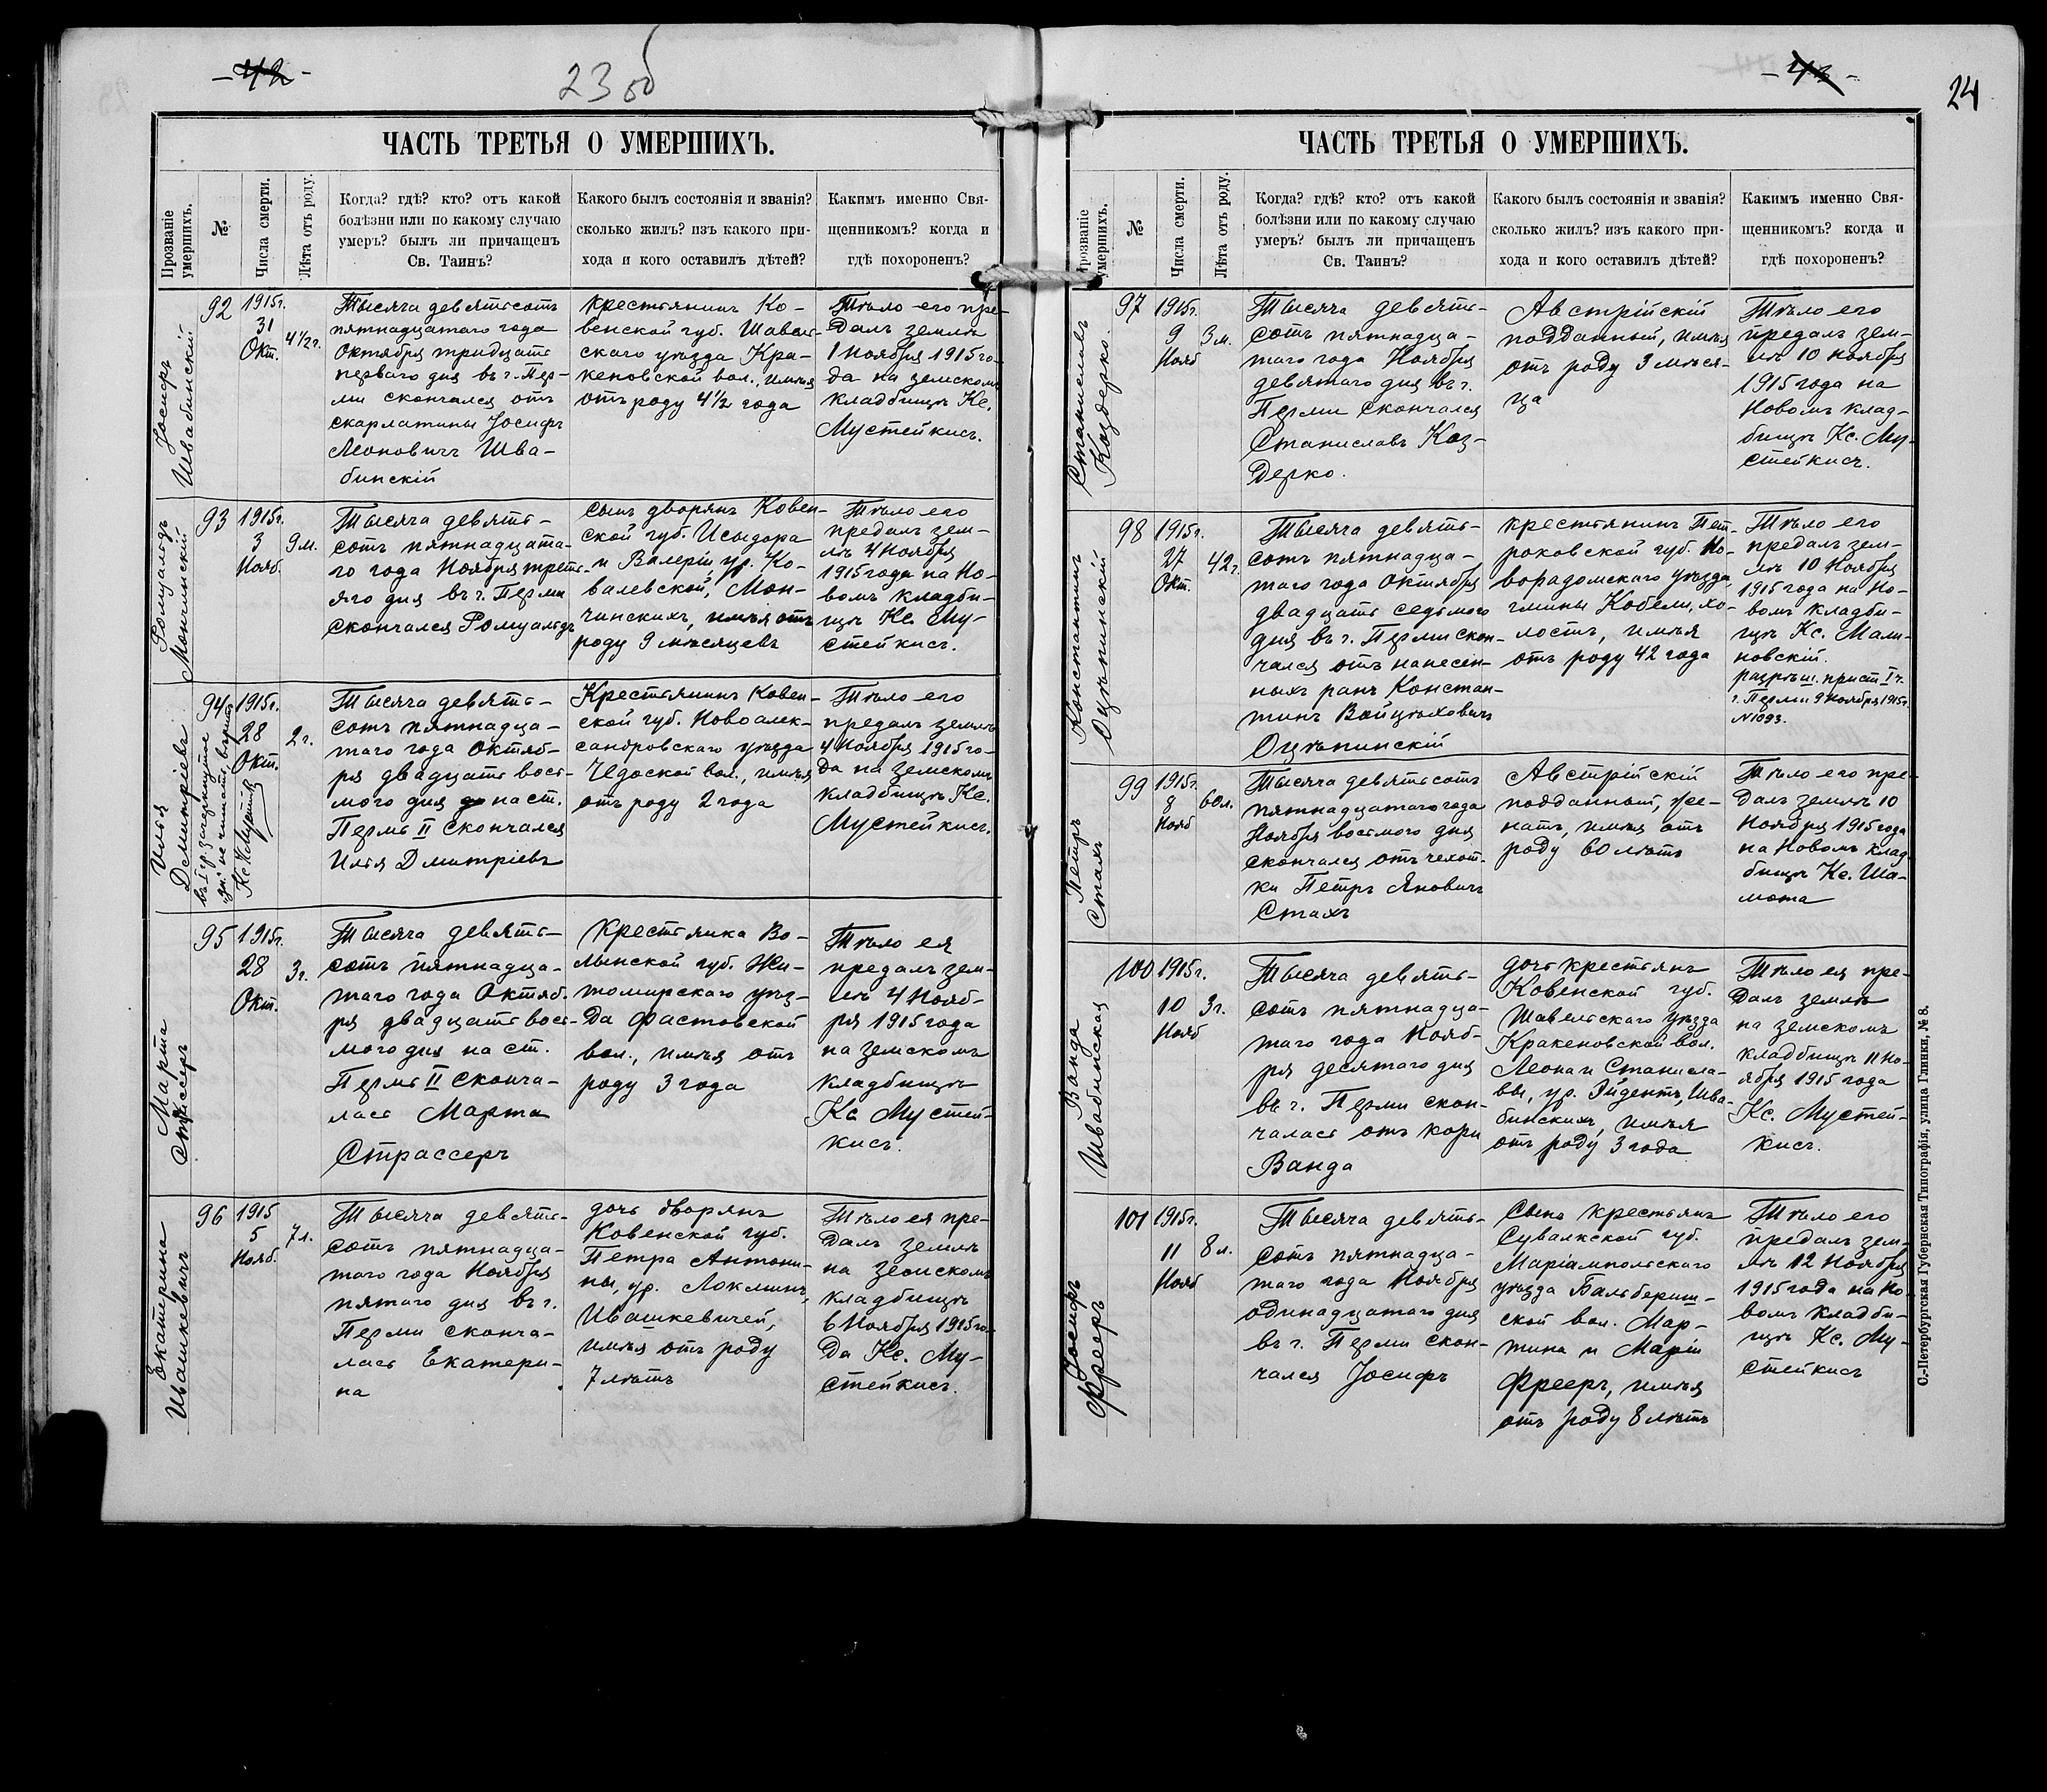 - 42 -
23 об
ЧАСТЬ ТРЕТЬЯ О УМЕРШИХЪ.
Прозваніе
умершихъ.
№
Числа смерти.
Лѣта отъ роду.
Когда? гдѣ? кто? отъ какой
болѣзни или по какому случаю
умеръ? былъ ли причащенъ
Св. Таинъ?
Какого былъ состоянія и званія?
сколько жилъ? изъ какого при-
хода и кого оставилъ дѣтей?
Какимъ именно Свя-
щенникомъ? когда и
гдѣ похороненъ?
Іосифъ
Швабинскій
92
1915г.
31
Окт.
4½г.
Тысяча девятьсотъ
пятнадцатаго года
Октября тридцать
перваго дня въ г. Пер-
ми скончался отъ
скарлатины Іосифъ
Леоновичъ Шва-
бинскій
крестьянинъ Ко-
венской губ. Шавель-
скаго уѣзда Кра-
кеновской вол., имѣя
отъ роду 4½ года
Тѣло его пре-
далъ землѣ
1 Ноября 1915 го-
да на земскомъ
кладбищѣ Кс.
Мустейкисъ.
Ромуальдъ
Мончинскій
93
1915г.
3
Нояб.
9м.
Тысяча девять-
сотъ пятнадцата-
го года Ноября треть-
яго дня въ г. Перми
скончался Ромуальдъ
сынъ дворянъ Ковен-
ской губ. Исидора
и Валеріи, ур. Ко-
валевской, Мон-
чинскихъ, имѣя отъ
роду 9 мѣсяцевъ
Тѣло его
предалъ зем-
лѣ 4 Ноября
1915 года на Но-
вомъ кладби-
щѣ Кс. Му-
стейкисъ.
Илья
Дмитріевъ
94
въ 1 гр. зачеркнутое
не читать, вѣрно
Кс. К. Мустейкис
1915г.
28
Окт.
2г.
Тысяча девять-
сотъ пятнадца-
таго года Октяб-
ря двадцать вось-
мого дня на ст.
Пермь II скончался
Илья Дмитріевъ
Крестьянинъ Ковен-
ской губ. Новоалек-
сандровскаго уѣзда
Чедоской вол., имѣя
отъ роду 2 года
Тѣло его
предалъ землѣ
4 Ноября 1915 го-
да на земскомъ
кладбищѣ Кс.
Мустейкисъ.
Марта
Страссеръ
95
1915г.
28
Окт.
3г.
Тысяча девять-
сотъ пятнадца-
таго года Октяб-
ря двадцать вось-
мого дня на ст.
Пермь II сконча-
лась Марта
Страссеръ
Крестьянка Во-
лынской губ. Жи-
томирскаго уѣз-
да Фастовской
вол., имѣя отъ
роду 3 года
Тѣло ея
предалъ зем-
лѣ 4 Нояб-
ря 1915 года
на земскомъ
кладбищѣ
Кс. Мустей-
кисъ.
Екатерина
Ивашкевичъ
96
1915
5
Нояб.
7л.
Тысяча девять-
сотъ пятнадца-
таго года Ноября
пятаго дня въ г.
Перми сконча-
лась Екатери-
на
дочь дворянъ
Ковенской губ.
Петра Антони-
ны, ур. Локлинъ,
Ивашкевичей,
имѣя отъ роду
7 лѣтъ
Тѣло ея пре-
далъ землѣ
на земскомъ
кладбищѣ
6 Ноября 1915 го-
да Кс. Му-
стейкисъ.
- 43 -
24
ЧАСТЬ ТРЕТЬЯ О УМЕРШИХЪ.
Прозваніе
умершихъ.
№
Числа смерти.
Лѣта отъ роду.
Когда? гдѣ? кто? отъ какой
болѣзни или по какому случаю
умеръ? былъ ли причащенъ
Св. Таинъ?
Какого былъ состоянія и званія?
сколько жилъ? изъ какого при-
хода и кого оставилъ дѣтей?
Какимъ именно Свя-
щенникомъ? когда и
гдѣ похороненъ?
Станиславъ
Каздерко.
97
1915г.
9
Нояб
3м.
Тысяча девять-
сотъ пятнадца-
таго года Ноября
девятаго дня въ г.
Перми скончался
Станиславъ Каз-
дерко.
Австрійскій
подданный, имѣя
отъ роду 3 мѣся-
ца
Тѣло его
предалъ зем-
лѣ 10 Ноября
1915 года на
Новомъ клад-
бищѣ Кс. Му-
стейкисъ.
Константинъ
Оцѣпинскій
98
1915г.
27
Окт.
42г.
Тысяча девять-
сотъ пятнадца-
таго года Октября
двадцать седьмого
дня въ г. Перми скон-
чался отъ нанесен-
ныхъ ранъ Констан-
тинъ Войцѣховичъ
Оцѣпинскій
крестьянинъ Пет-
роковской губ. Но-
ворадомскаго уѣзда
гмины Кобели, хо-
лостъ, имѣя
отъ роду 42 года
Тѣло его
предалъ зем-
лѣ 10 Ноября
1915 года на Но-
вомъ кладби-
щѣ Кс. Мали-
новскій.
разрѣш. прист. I ч.
г. Перми 9 Ноября 1915г.
№1093.
Петръ
Стахъ
99
1915г.
8
Нояб
60л.
Тысяча девятьсотъ
пятнадцатаго года
Ноября восьмого дня
скончался отъ чехот-
ки Петръ Яновичъ
Стахъ
Австрійскій
подданный, же-
натъ, имѣя отъ
роду 60 лѣтъ
Тѣло его пре-
далъ землѣ 10
Ноября 1915 года
на Новомъ клад-
бищѣ Кс. Ша-
мота
Ванда
Швабинская
100
1915г.
10
Нояб
3г.
Тысяча девять-
сотъ пятнадца-
таго года Нояб-
ря десятаго дня
въ г. Перми скон-
чалась отъ кори
Ванда
дочь крестьянъ
Ковенской губ.
Шавельскаго уѣзда
Кракеновской вол.
Леона и Станисла-
вы, ур. Эйдентъ, Шва-
бинскихъ, имѣя
отъ роду 3 года
Тѣло ея пре-
далъ землѣ
на земскомъ
кладбищѣ 11 Но-
ября 1915 года
Кс. Мустей-
кисъ.
Іосифъ
Фрееръ
101
1915г.
11
Нояб
8л.
Тысяча девять-
сотъ пятнадца-
таго года Ноября
одинадцатаго дня
въ г. Перми скон-
чался Іосифъ
Сынъ крестьянъ
Сувалкской губ.
Маріампольскаго
уѣзда Бальбериш-
ской вол. Мар-
тина и Маріи
Фрееръ, имѣя
отъ роду 8 лѣтъ
Тѣло его
предалъ зем-
лѣ 12 Ноября
1915 года на Но-
вомъ кладби-
щѣ Кс. Му-
стейкисъ
С.-Петербургская Губернская Типографія, улица Глинки, № 8.